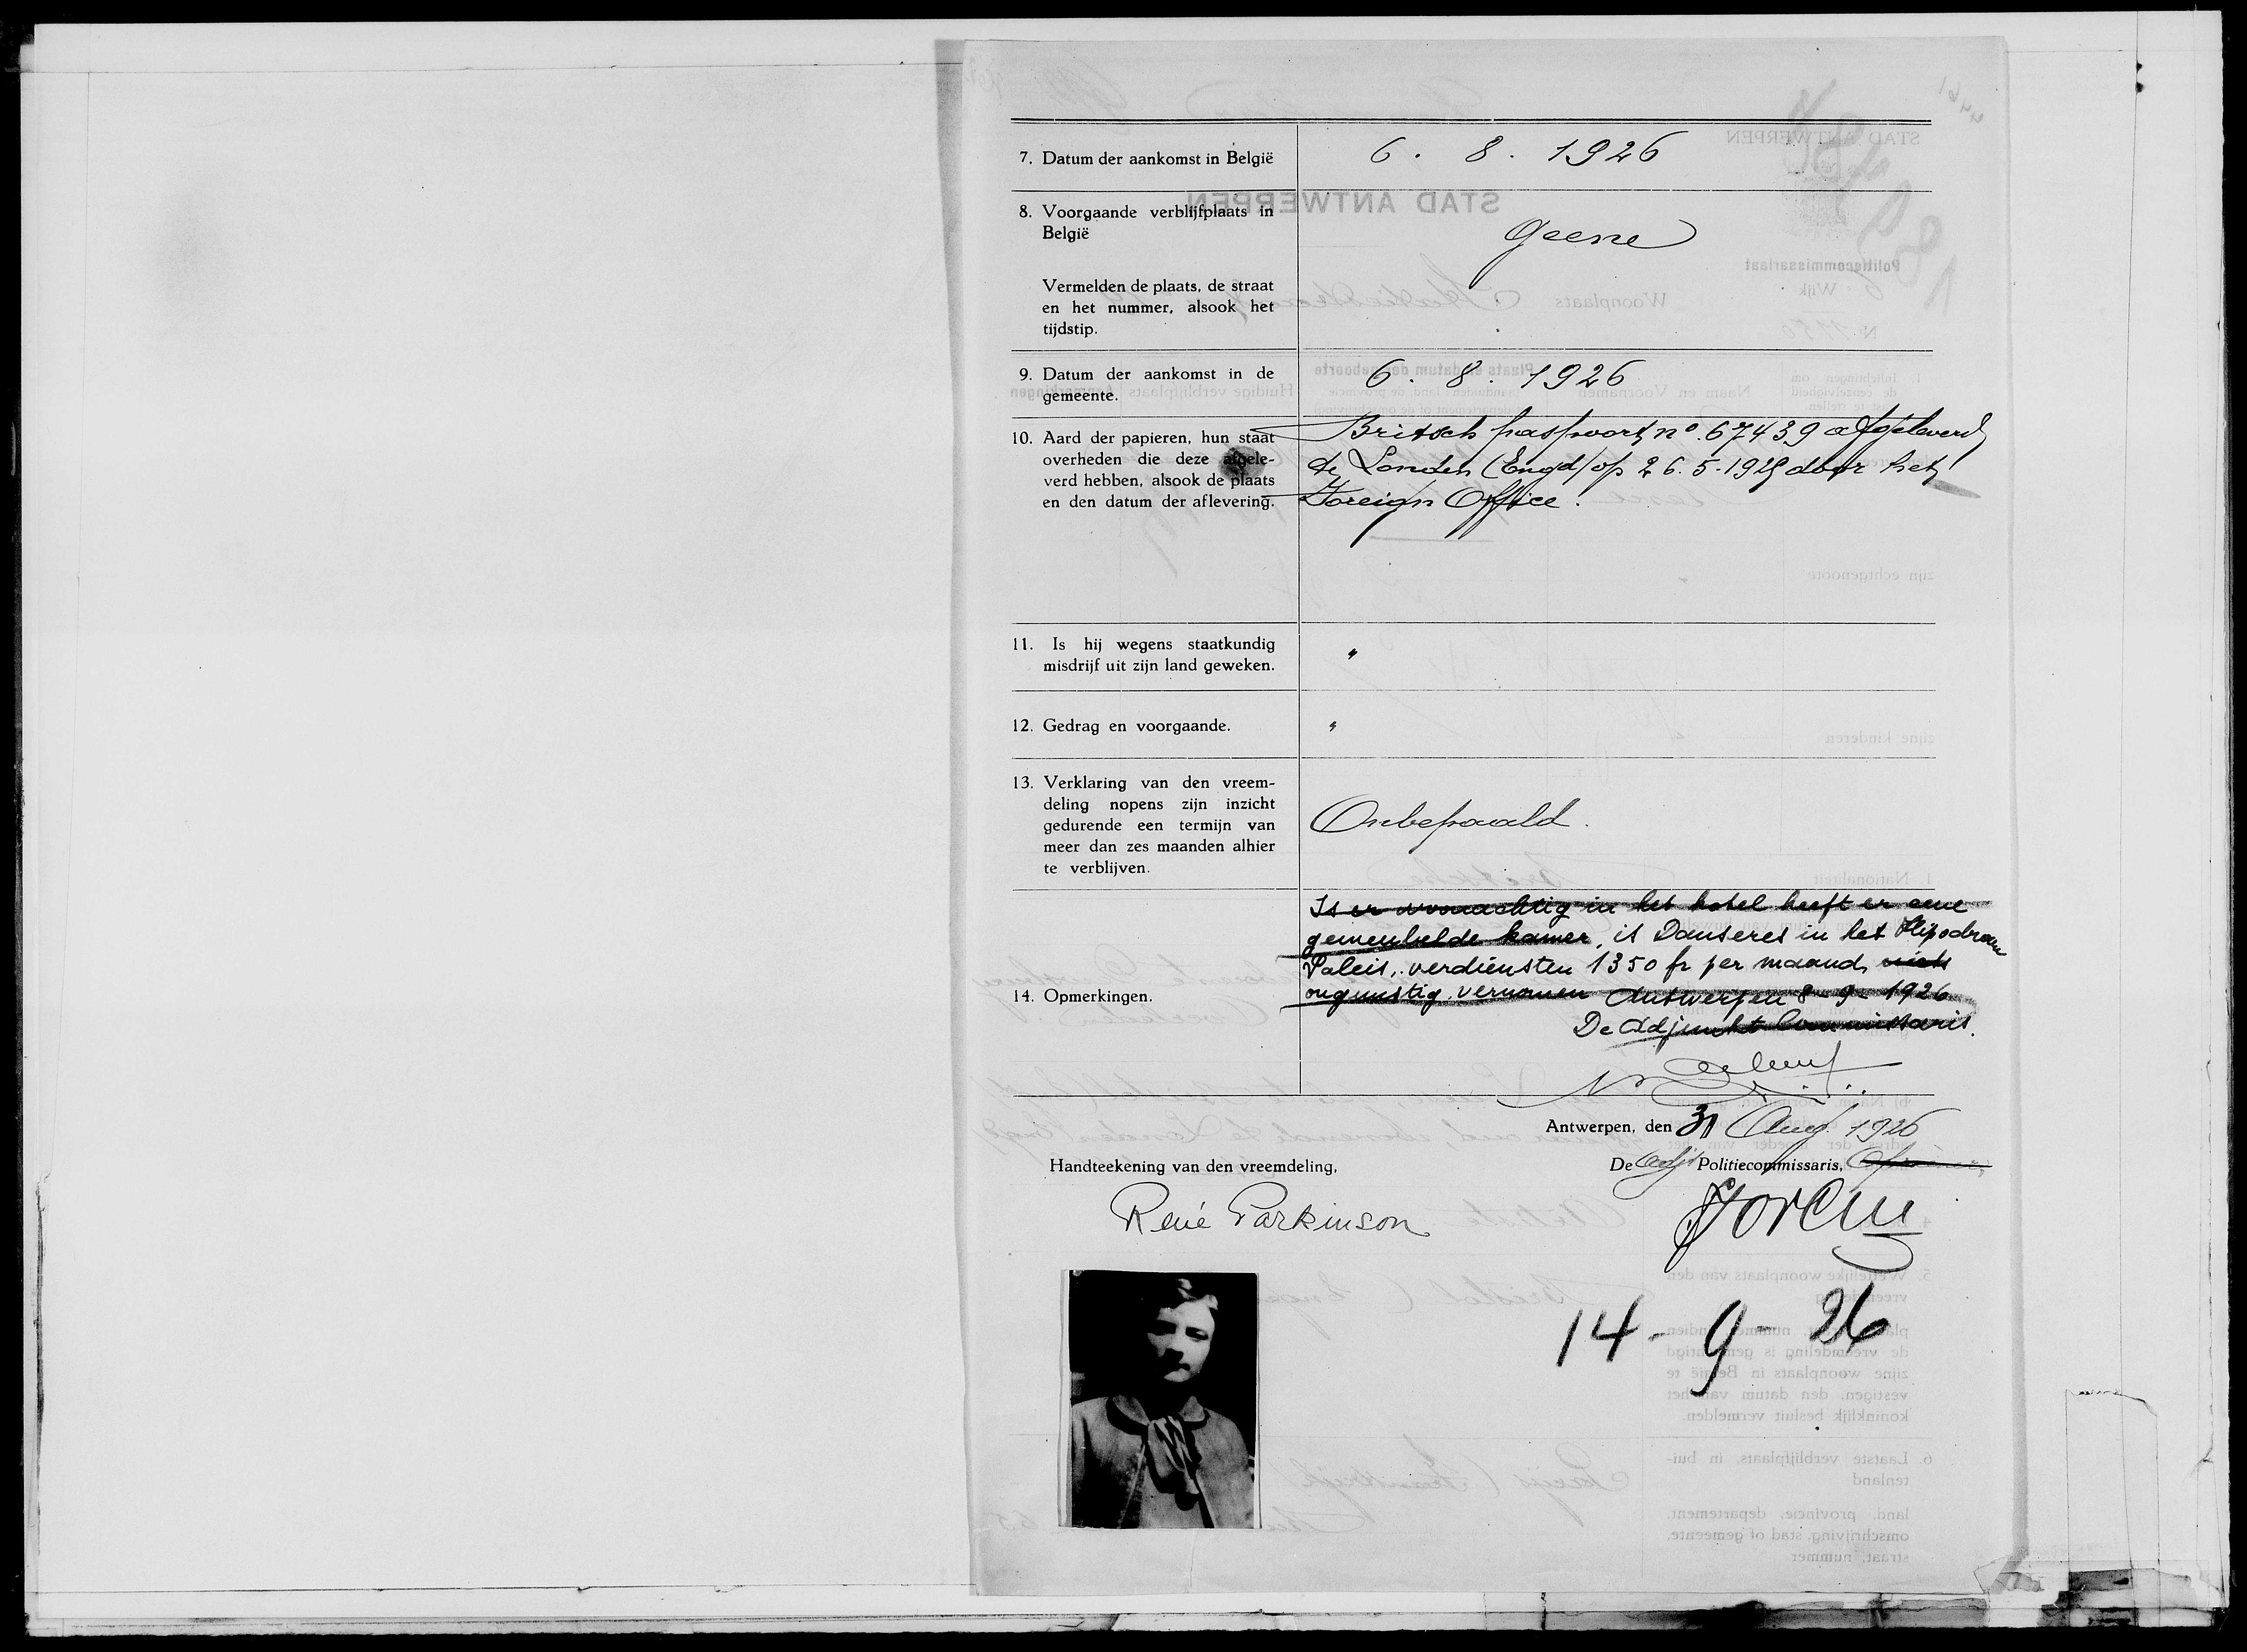 7. Datum der aankomst in België
6. 8. 1926
8. Voorgaande verblijfplaats in
België
Geene
Vermelden de plaats, de straat
en het nummer, alsook het
tijdstip.
9. Datum der aankomst in de
gemeente.
6. 8. 1926
10. Aard der papieren, hun staat
overheden die deze afgele-
verd hebben, alsook de plaats
en den datum der aflevering.
Britsch paspoort nº 67439 afgeleverd
te Londen (Engd) op 26.5.1925 door het
Foreign Office.
11. Is hij wegens staatkundig
misdrijf uit zijn land geweken.
"
12. Gedrag en voorgaande.
"
13. Verklaring van den vreem-
deling nopens zijn inzicht
gedurende een termijn van
meer dan zes maanden alhier
te verblijven.
Onbepaald.
14. Opmerkingen.
Is er woonachtig in het hotel heeft er eene
gemeubelde kamer, is Danseres in het Hipodroom
Paleis, verdiensten 1350 fr per maand, niets
ongunstig vernomen Antwerpen 8-9-1926
De Adjunkt Commissaris.
Antwerpen, den 31 Aug. 1926
Handteekening van den vreemdeling,
De Adjt Politiecommissaris,
René Parkinson
14-9-26